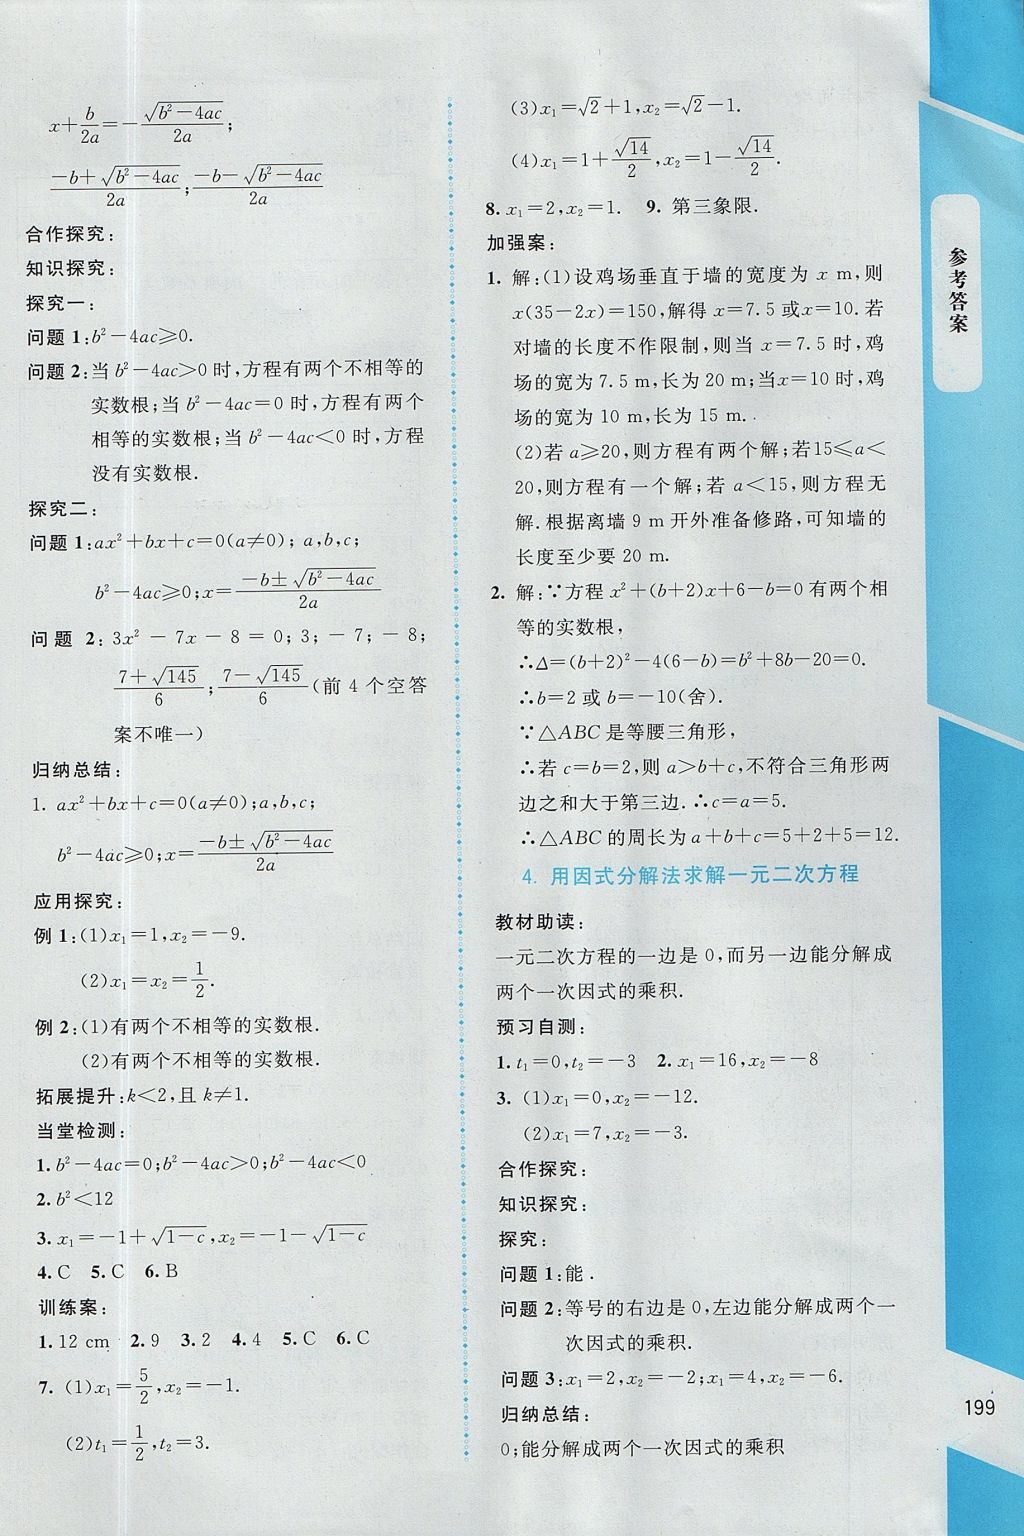 x+b/2a=-√(b²-4ac)/2a;
(-b+√(b²-4ac))/2a;(-b-√(b²-4ac))/2a
合作探究:
知识探究:
探究一:
问题1:b²-4ac≥0.
问题2:当b²-4ac>0时,方程有两个不相等的
实数根;当b²-4ac=0时,方程有两个
相等的实数根;当b²-4ac<0时,方程
没有实数根.
探究二:
问题1:ax²+bx+c=0(a≠0); a,b,c;
b²-4ac≥0;x=(-b±√(b²-4ac))/2a
问题 2: 3x²-7x-8=0; 3; -7; -8;
(7+√145)/6;(7-√145)/6(前4个空答
案不唯一)
归纳总结:
1. ax²+bx+c=0(a≠0);a,b,c;
b²-4ac≥0;x=(-b±√(b²-4ac))/2a
应用探究:
例1:(1)x₁=1,x₂=-9.
(2)x₁=x₂=1/2.
例2:(1)有两个不相等的实数根.
(2)有两个不相等的实数根.
拓展提升:k<2,且k≠1.
当堂检测:
1.b²-4ac=0;b²-4ac>0;b²-4ac<0
2.b²<12
3.x₁=-1+√(1-c),x₂=-1-√(1-c)
4.C 5.C 6.B
训练案:
1.12 cm 2.9 3.2 4.4 5.C 6.C
7. (1)x₁=5/2,x₂=-1.
(2)t₁=1/2,t₂=3.
(3)x₁=√2+1,x₂=√2-1.
(4)x₁=1+√14/2,x₂=1-√14/2.
8.x₁=2,x₂=1. 9. 第三象限.
加强案:
1. 解:(1)设鸡场垂直于墙的宽度为 x m,则
x(35-2x)=150,解得x=7.5或x=10.若
对墙的长度不作限制,则当x=7.5时,鸡
场的宽为7.5 m,长为20 m;当x=10时,鸡
场的宽为10 m,长为15 m.
(2)若a≥20,则方程有两个解;若15≤a<
20,则方程有一个解;若a<15,则方程无
解.根据离墙9 m开外准备修路,可知墙的
长度至少要20 m.
2. 解:∵方程x²+(b+2)x+6-b=0有两个相
等的实数根,
∴Δ=(b+2)²-4(6-b)=b²+8b-20=0.
∴b=2或b=-10(舍).
∵△ABC是等腰三角形,
∴若c=b=2,则a>b+c,不符合三角形两
边之和大于第三边.∴c=a=5.
∴△ABC的周长为a+b+c=5+2+5=12.
4. 用因式分解法求解一元二次方程
教材助读:
一元二次方程的一边是0,而另一边能分解成
两个一次因式的乘积.
预习自测:
1.t₁=0,t₂=-3 2.x₁=16,x₂=-8
3. (1)x₁=0,x₂=-12.
(2)x₁=7,x₂=-3.
合作探究:
知识探究:
探究:
问题1:能.
问题2:等号的右边是0,左边能分解成两个一
次因式的乘积.
问题3:x₁=2,x₂=-2;x₁=4,x₂=-6.
归纳总结:
0;能分解成两个一次因式的乘积
参考答案
199